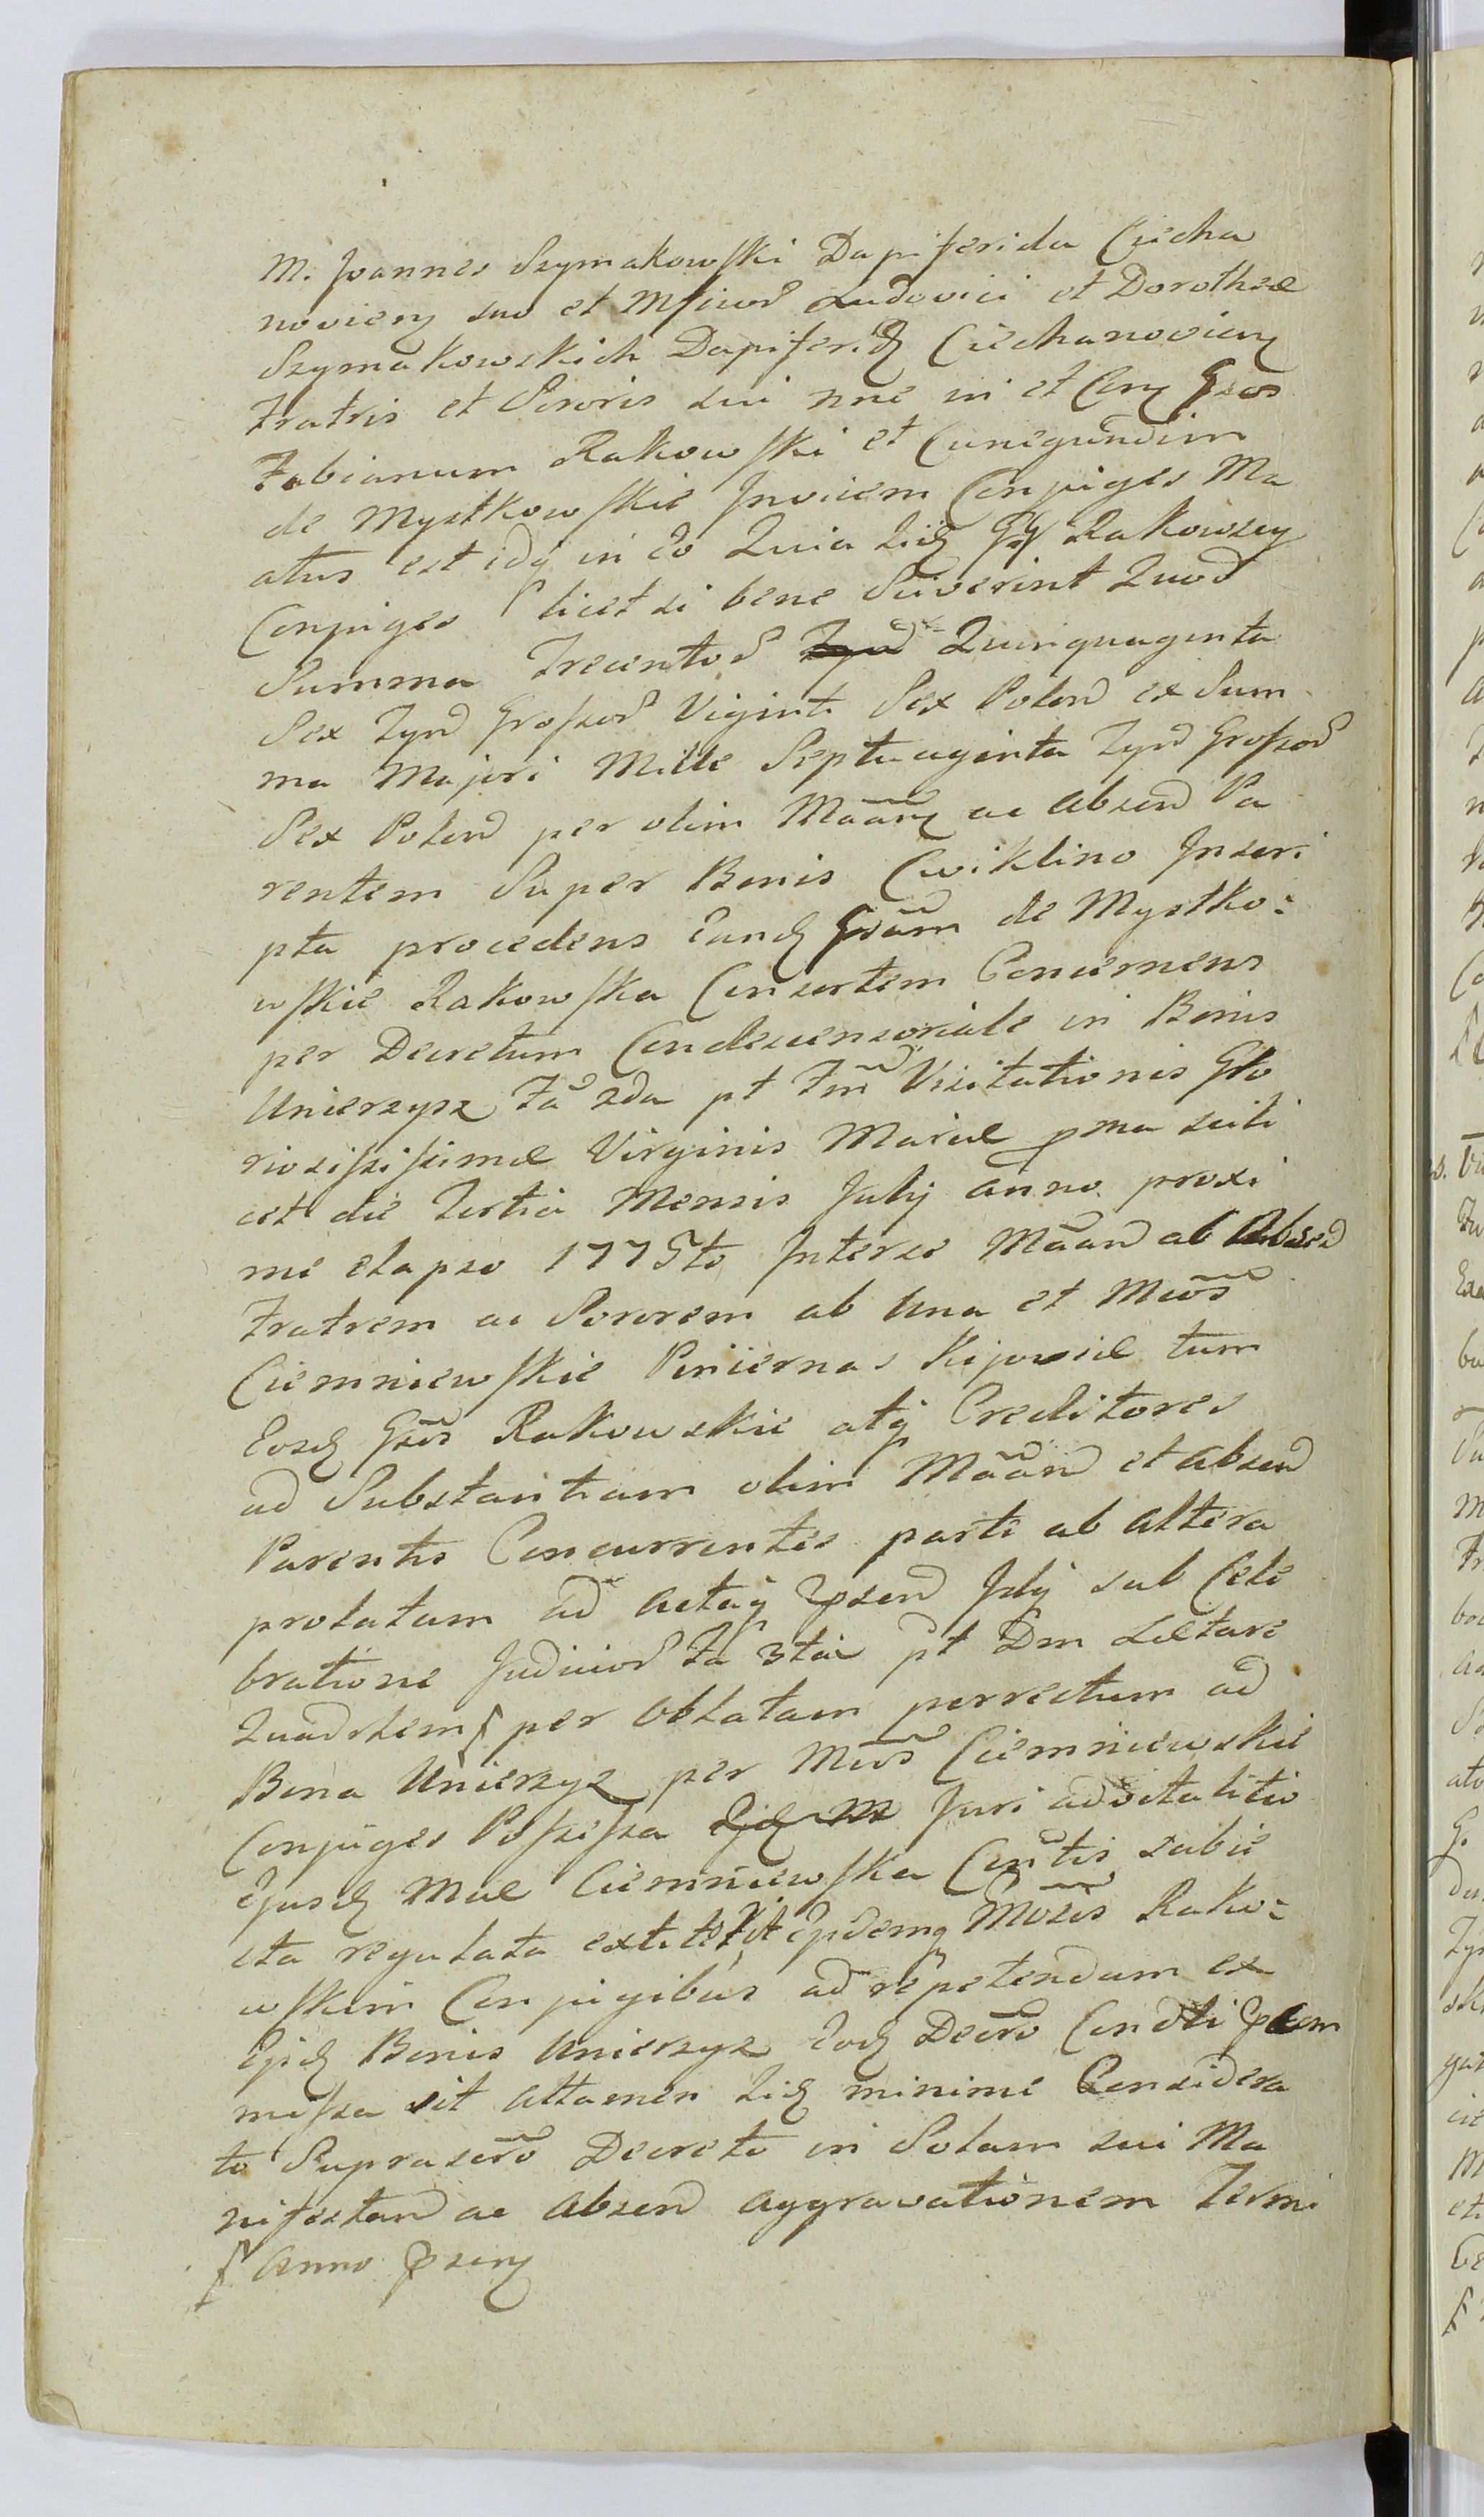 M. Joannes Szymakowski Dapiferida Ciecha
novien suo et Mficor Ludovici et Dorotheæ
Szymakowskich Dapiferid Ciechanovien
Fratris et Sororis sui nne in et Con Gsos
Fabianum Rakowski et Cunegundim
de Mystkowskie Invicem Conjuges Ma
atus est idq in eo Quia iid GG Rakowscy
Conjuges licet si bene Sciverint Quod
Summa Trecentor Quinquaginta
Sex Tynd Grossor Viginti Sex Polon ex Sum
ma Majori Mille Septuaginta Tynd Grossor
Sex Polon per olim Maan ac absen Pa
rentem Super Bonis Cwiklino Inscri
pta procedens Eand Gsam de Mystko:
wskie Rakowska Consortem Concernens
per Decretum Condescensoriale in Bonis
Unierzysz Fa 2da pt Fm Visitationis Glo
riosissimæ Virginis Mariæ pma scili
cet die Tertia Mensis July anno proxi
me elapso 1775to Inter se Maan ab Absen
Fratrem ac Sororem ab Una et Mcos
Ciemniewskie Pincernas Kijoviæ tum
Eosd Gsos Rakowskie atq Creditores
ad Substantiam olim Maan et absen
Parentis Concurrentes parte ab altera
prolatum ad actaq psen July sub Cele
bratione Judicior Fa 3tia pt Dm Lætare
Quadrlem ſ per Oblatam porrectum ad
Bona Unierzyz per Mcos Ciemniewskie
Conjuges Possessa Juri advitalitio
Ejusd Mae Ciemniewska Contis subie
cta regulata extitit ejsdemq Rako:
wskim Conjugibus ad repetendum ex
Ejsd Bonis Unierzyz Eod Decro Condli
missa sit attamen iid minime Considera
to Suprascro Decreto in Solam sui Ma
nifestan ac absen aggravationem Termi
ſ Anno psen